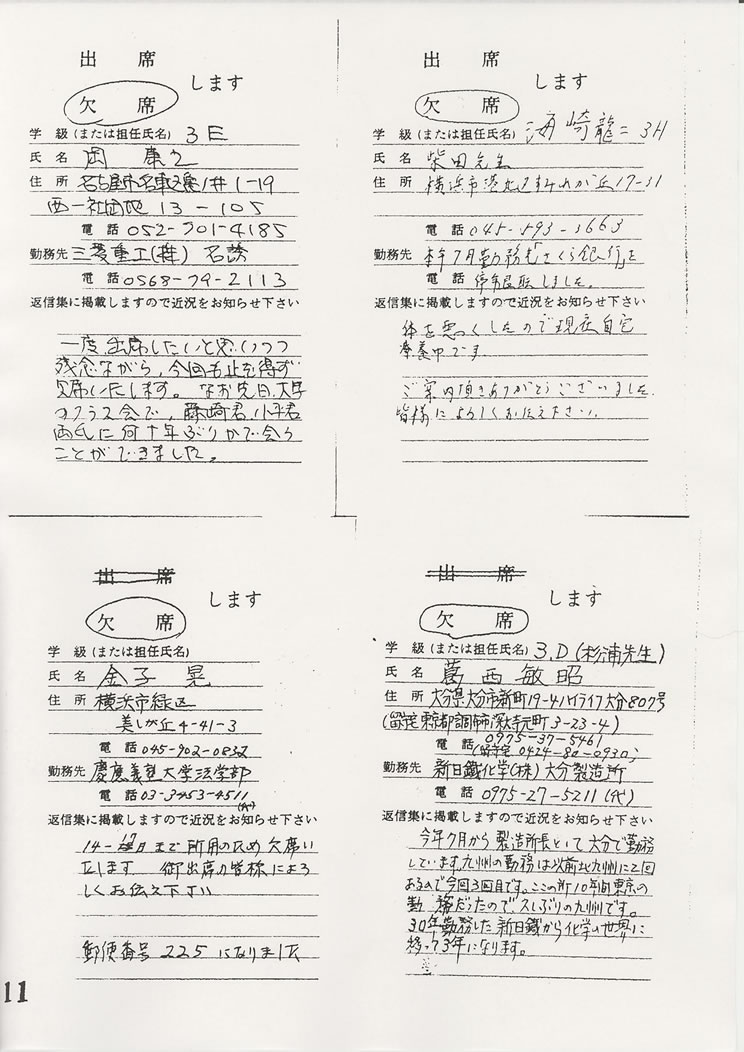 出席
します
欠席
学級(または担任氏名) 3E
氏名 岡 康之
住所 名古屋市名東区 1-19
西一社団地 13-105
電話 052-701-4185
勤務先 三菱重工(株) 名誘
電話 0568-79-2113
返信集に掲載しますので近況をお知らせ下さい
一度出席したいと思いつつ
残念ながら、今回も止を得ず
欠席いたします。なお先日、大学
のクラス会で、藤崎君、小平君
両氏に何十年ぶりかで会う
ことができました。
出席
します
欠席
学級(または担任氏名) 3H
氏名 柴田先生
住所 横浜市港北区 が丘17-31
電話 045-593-3663
勤務先 本年7月勤務先「さくら銀行」を
電話 停年退職しました。
返信集に掲載しますので近況をお知らせ下さい
体を悪くしたので現在自宅
療養中です
ご案内頂きありがとうございました。
皆様によろしくお伝え下さい。
出席
します
欠席
学級(または担任氏名)
氏名 金子 晃
住所 横浜市緑区
美しが丘4-41-3
電話 045-902-0832
勤務先 慶應義塾大学法学部
電話 03-3453-4511(代)
返信集に掲載しますので近況をお知らせ下さい
14-17日まで所用のため欠席い
たします 御出席の皆様によろ
しくお伝え下さい
郵便番号225になりました
出席
します
欠席
学級(または担任氏名) 3.D(杉浦先生)
氏名 葛西敏昭
住所 大分県大分市新町19-4ハイライフ大分807号
(留守宅東京都調布市深大寺元町3-23-4)
電話 0975-37-5461
(留守宅 0424-80-0930)
勤務先 新日鐵化学(株)大分製造所
電話 0975-27-5211(代)
返信集に掲載しますので近況をお知らせ下さい
今年7月から製造所長として大分で勤務
しています。九州の勤務は以前北九州に2回
あるので今回3回目です。ここの所10年間東京の
勤務だったので、久しぶりの九州です。
30年勤務した新日鐵から化学の世界に
移って3年になります。
11